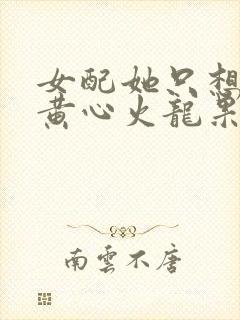 女配她只想
黄心火龙果
南雲不唐